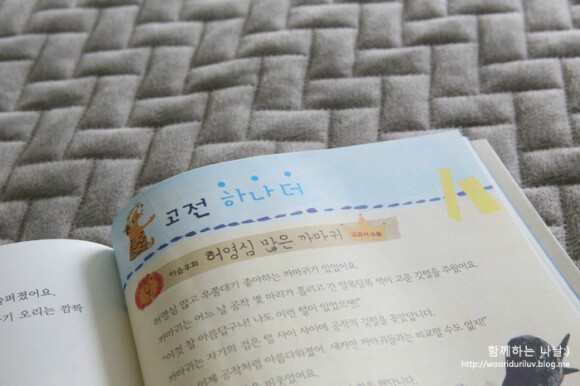 고전 하나 더
이솝우화 허영심 많은 까마귀 교과서 수록
허영심 많고 우쭐대기 좋아하는 까마귀가 있었어요.
까마귀는 어느 날 공작 몇 마리가 흘리고 간 알록달록 색이 고운 깃털을 주웠어요.
"이것 참 아름답구나! 나도 이런 털이 있었으면!"
까마귀는 자기의 검은 털 사이 사이에 공작의 깃털을 꽂았답니다.
이제 공작처럼 아름다워졌어. 새카만 까마귀들과는 비교할 수도 없지!"
비웃었어요.
펴졌어요.
기 오리는 깜짝
함께하는 나날:)
http://wooriduriluv.blog.me